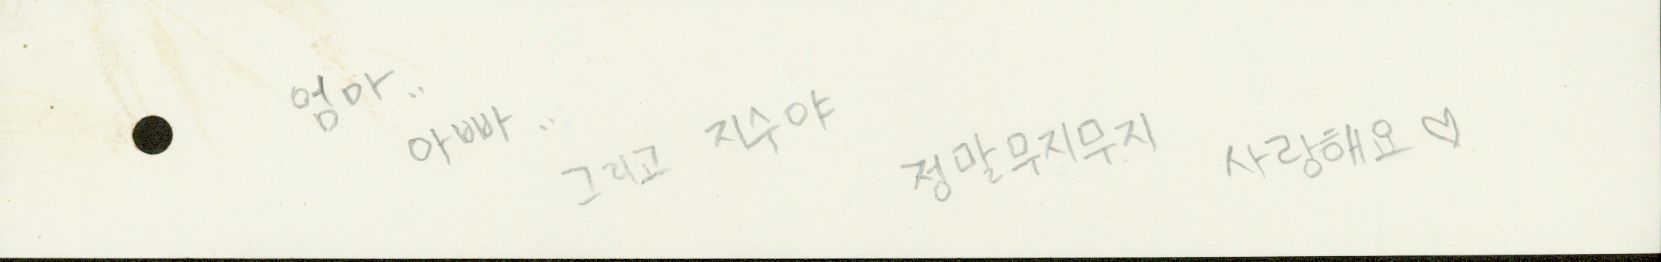 엄마.. 아빠.. 그리고 지수야 정말무지무지 사랑해요♡